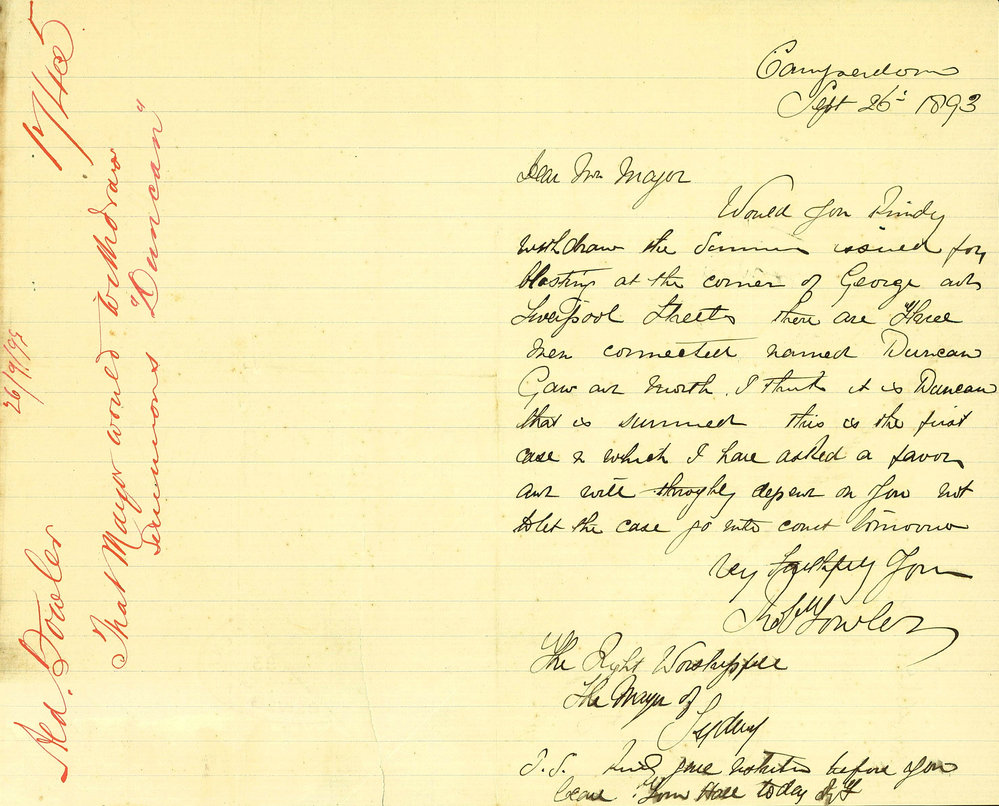 Camperdown
Sept 26 1893
Dear Mr Mayor
Would you Kindly
withdraw the Summes issued for
blasting at the corner of George and
Liverpool Streets there are three
men connected named Duncan
Gaw and North. I think it is Duncan
that is summed this is the first
case in which I have asked a favor
and will throughly depend on you not
to let the case go into court tomorrow
Very faithfully Yours
Robt Fowler
The Right Worshipful
The Mayor of
Sydney
P.S. Kindly give before you
leave Town Hall today RF
Ald. Fowler
26/9/93
1745
That Mayor would withdraw
Summons "Duncan"